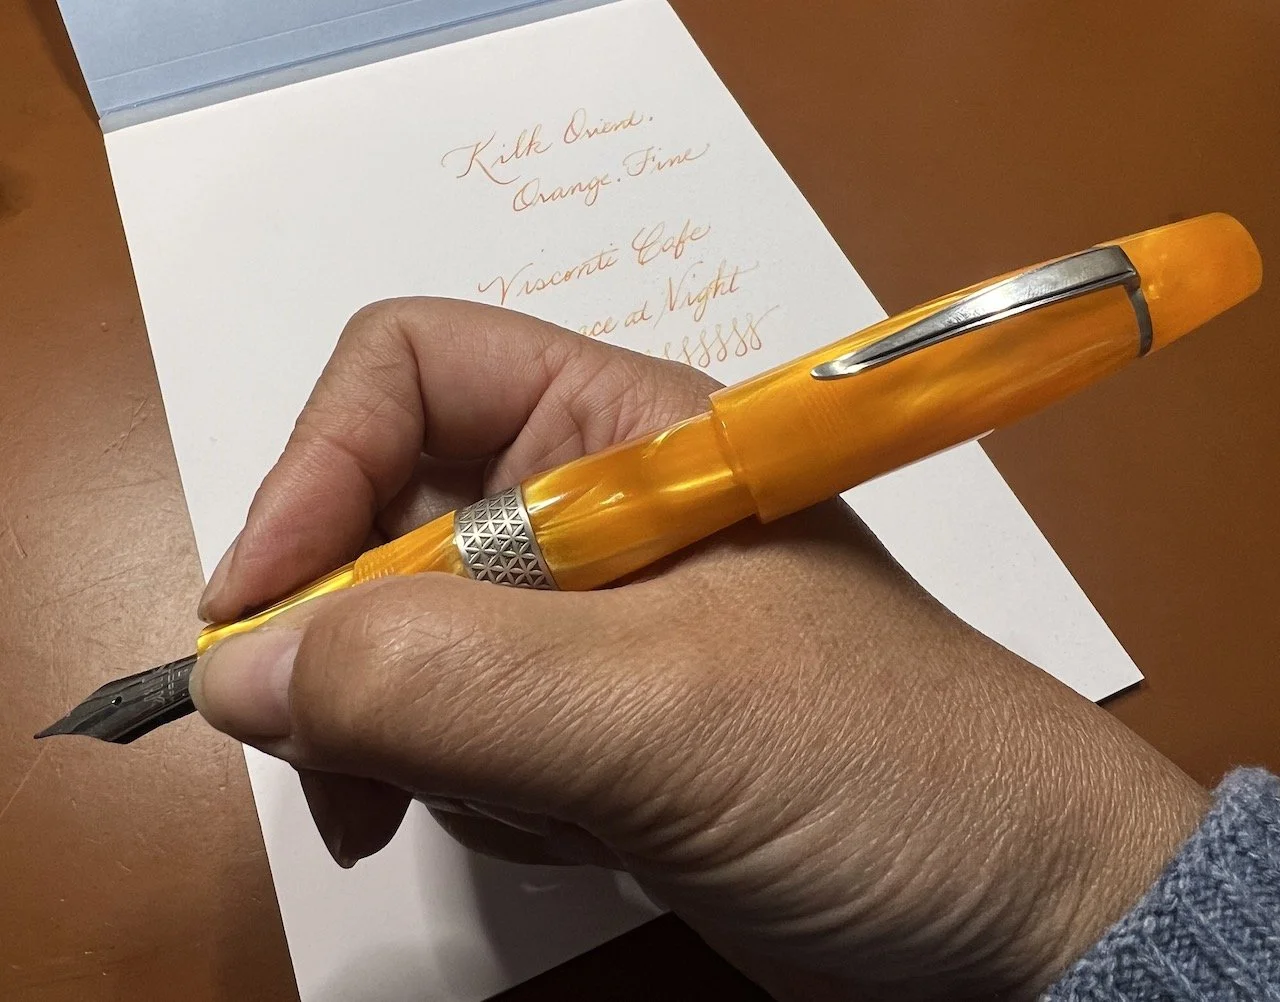 Kilk Orient.
Orange. Fine
Visconti Cafe
at Night